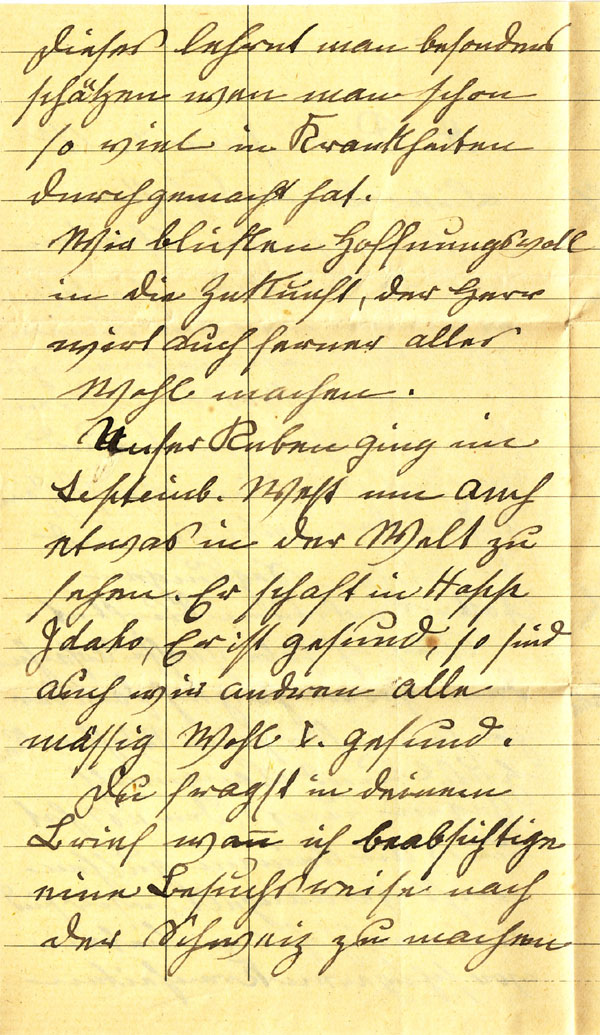 Dieses lehrnt man besonders
schätzen wen man schon
so viel in Krankheiten
durchgemacht hat.
Wir blicken Hoffnungsvoll
in die Zukunft, der Herr
wirt auch ferner alles
Wohl machen.
Unser Ruben ging im
Septemb. West um auch
etwas in der Welt zu
sehen. Er schaft in
Idaho, Er ist gesund, so sind
auch wir andren alle
mässig Wohl &. gesund.
Du fragst in deinem
Brief wan̄ ich beabsichtige
eine Besuchsreise nach
der Schweiz zu machen